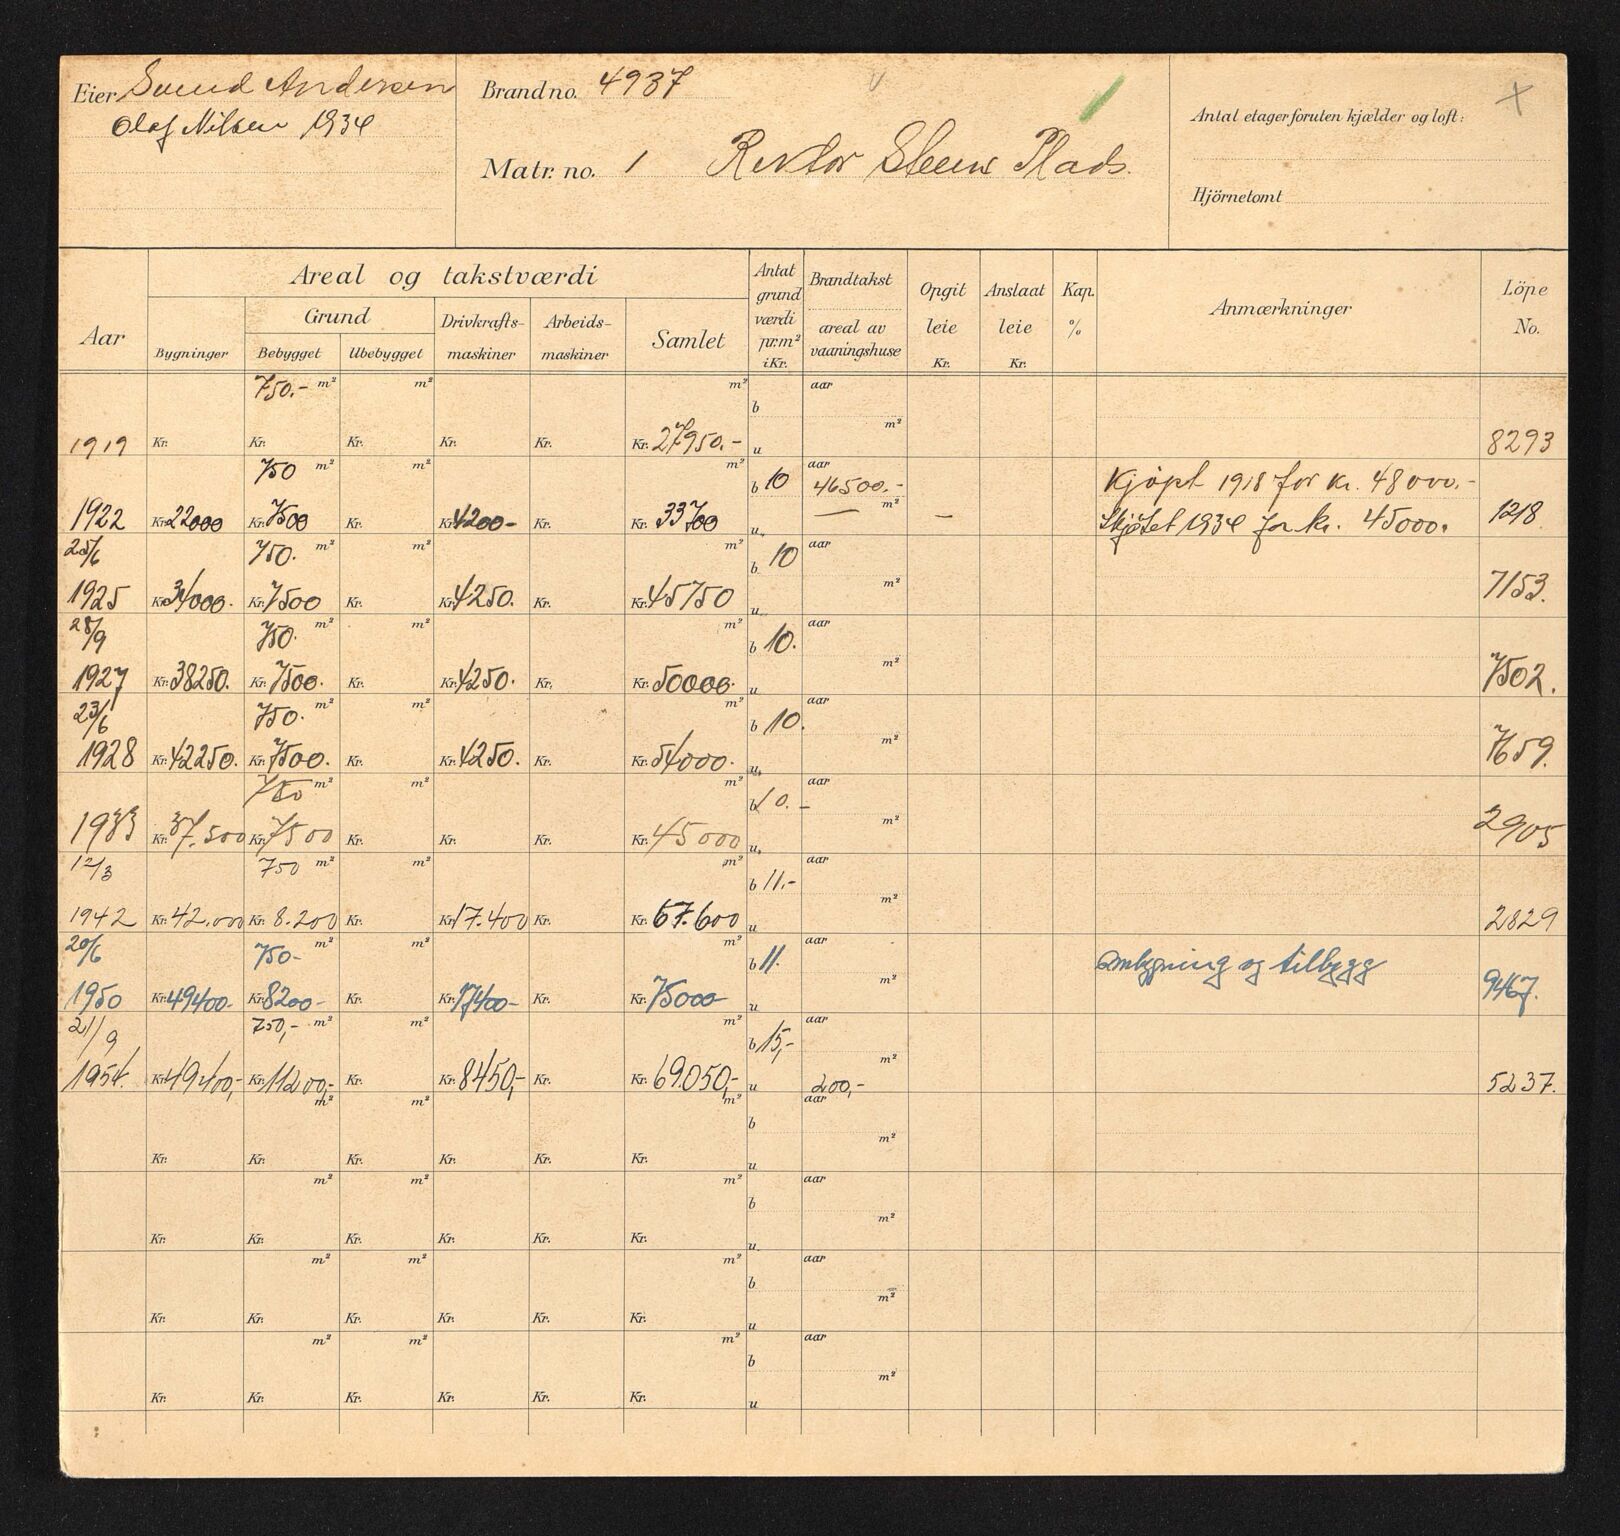 Eier Svend Andersen
Olaf Nilsen 1934
Brand no. 4937
Matr. no. 1 Rektor Steens Plads.
Antal etager foruten kjælder og loft:
Hjörnetomt
Aar
Areal og takstværdi
Bygninger
Grund
Bebygget Ubebygget
Drivkrafts-
maskiner
Arbeids-
maskiner
Samlet
Antat
grund
værdi
pr.m²
i Kr.
Brandtakst
areal av
vaaningshuse
Opgit
leie
Kr.
Anslaat
leie
Kr.
Kap.
%
Anmærkninger
Löpe
No.
750.- m² m² m² b aar
m²
1919 Kr. Kr. Kr. Kr. Kr. Kr. 27950.- u 8293
750 m² m² m² b 10 aar Kjøpt 1918 for kr. 48000.-
46500.- m²
1922 Kr. 22000 Kr. 7500 Kr. Kr. 4200- Kr. Kr. 33700 u — – Skjøtet 1934 for kr. 45000. 1218
25/6 750. m² m² m² b 10 aar
m²
1925 Kr. 34000. Kr. 7500 Kr. Kr. 4250. Kr. Kr. 45750 u 7153.
28/9 750. m² m² m² b 10. aar
m²
1927 Kr. 38250. Kr. 7500. Kr. Kr. 4250. Kr. Kr. 50000. u 7502.
23/6 750. m² m² m² b 10. aar
m²
1928 Kr. 42250. Kr. 7500. Kr. Kr. 4250. Kr. Kr. 54000. u 7659.
750 m² m² b 10.- aar
m²
1933 Kr. 37.500 Kr. 7500 Kr. Kr. Kr. Kr. 45000 u 2905
12/3 750 m² m² m² b 11.- aar
m²
1942 Kr. 42.000 Kr. 8.200 Kr. Kr. 17.400 Kr. Kr. 67.600 u 2829
20/6 750- m² m² m² b 11. aar ombygning og tilbygg
m²
1950 Kr. 49400- Kr. 8200- Kr. Kr. 17400- Kr. Kr. 75000- u 9467.
21/9 750,- m² m² m² b 15,- aar
m²
1954. Kr. 49400,- Kr. 11200,- Kr. Kr. 8450,- Kr. Kr. 69.050,- u 200,- 5237.
m² m² m² b aar
m²
Kr. Kr. Kr. Kr. Kr. Kr. u
m² m² m² b aar
m²
Kr. Kr. Kr. Kr. Kr. Kr. u
m² m² m² b aar
m²
Kr. Kr. Kr. Kr. Kr. Kr. u
m² m² m² b aar
m²
Kr. Kr. Kr. Kr. Kr. Kr. u